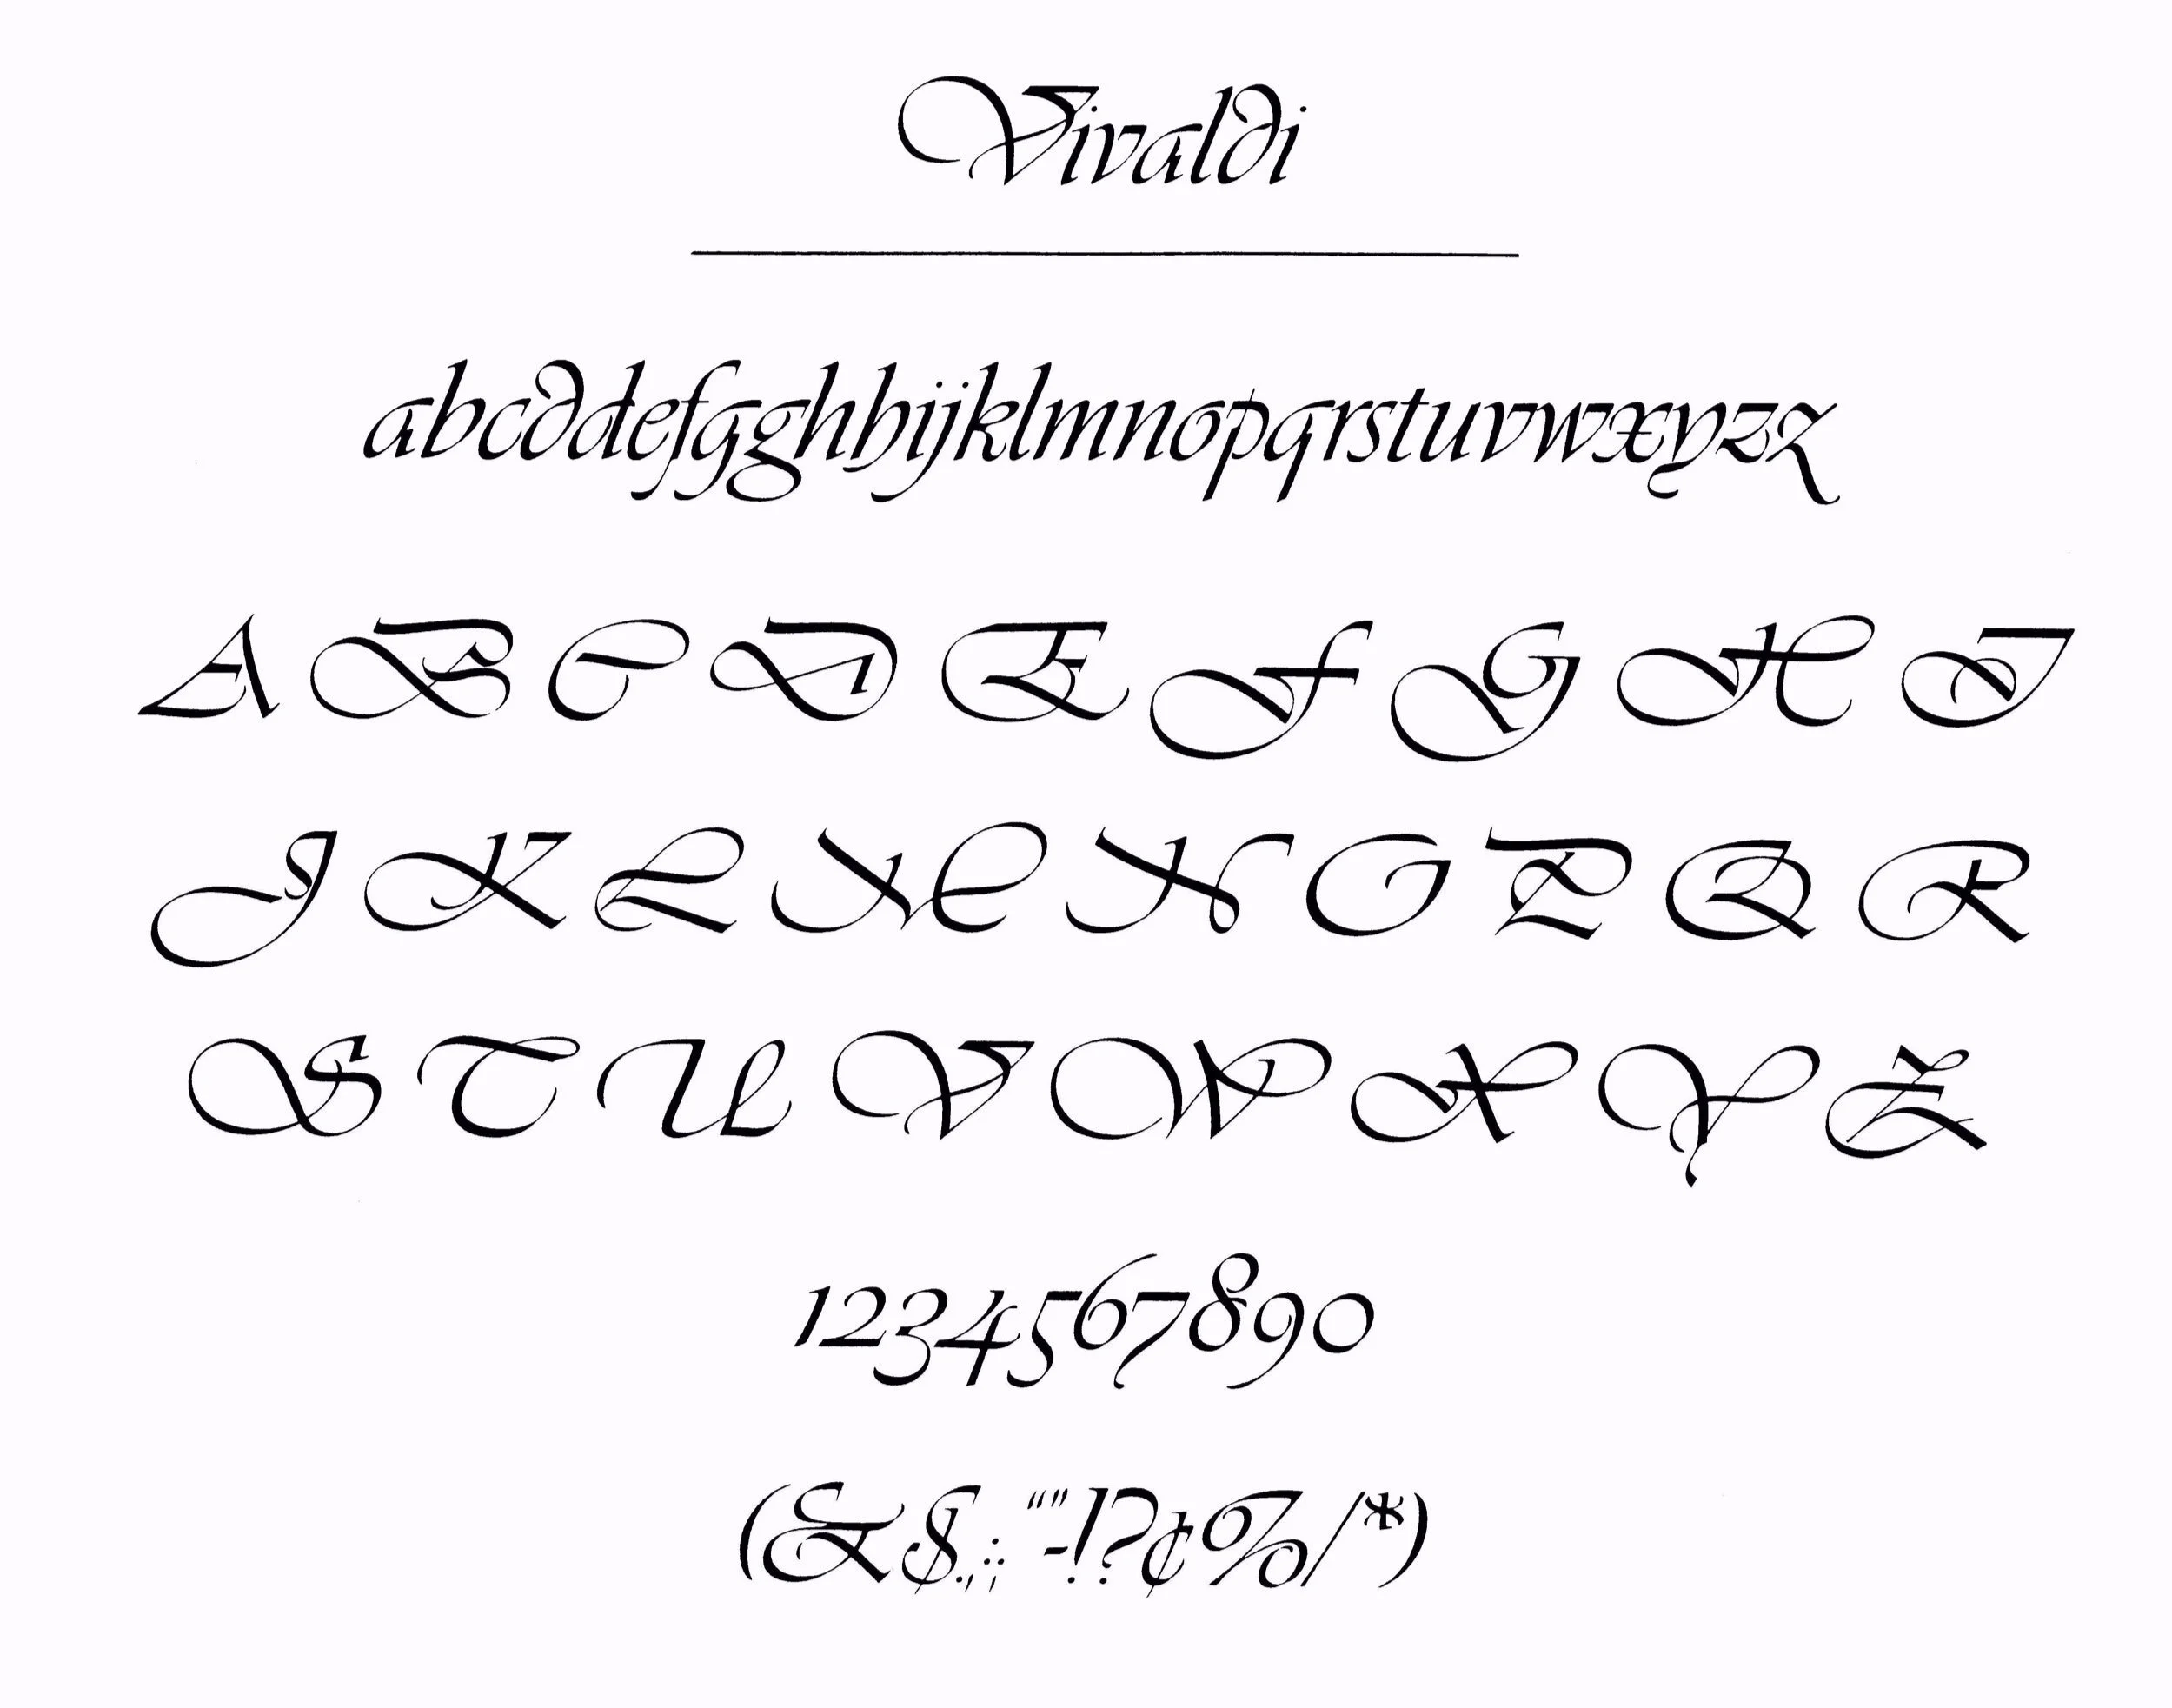 Vivaldi
abcddefgghhijklmnopqrstuvwxyzz
ABCDEFGHI
JKLMNOPQR
STUVWXYZ
1234567890
(&$.,:;""-!?¢%/*)